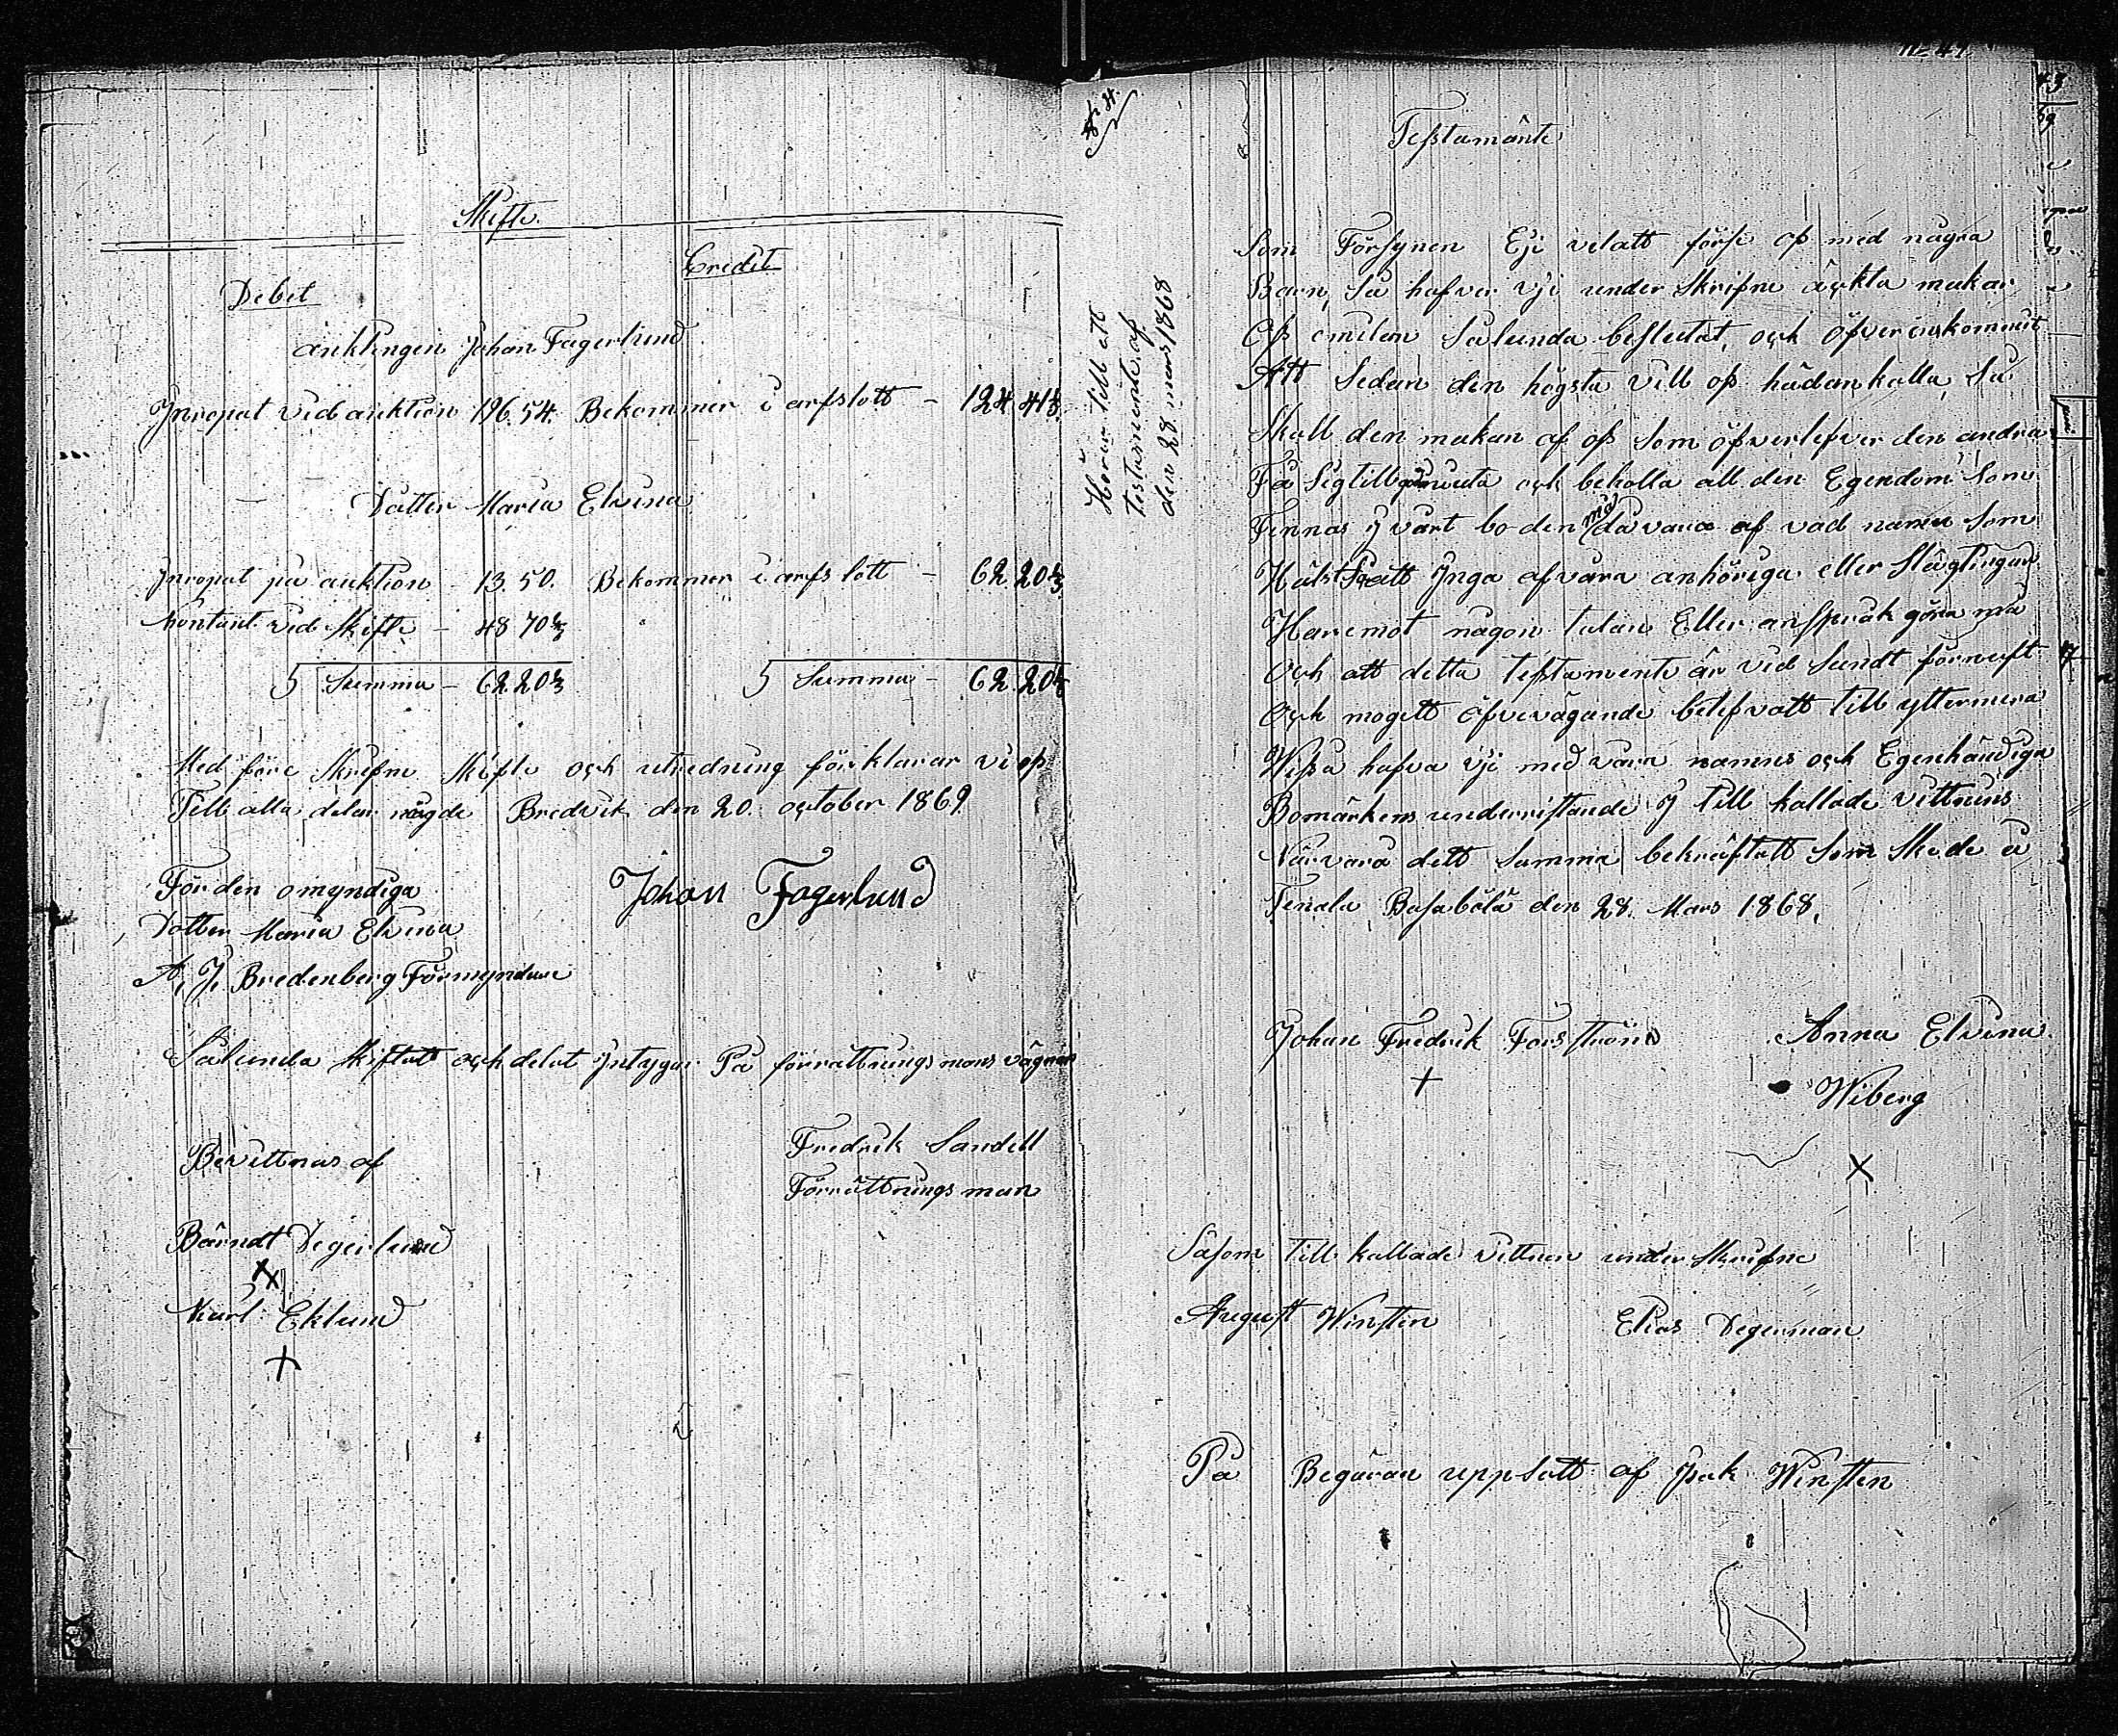 Skifte
Debet
Credit
änklingen Johan Fagerlund
Inropat vid auktion 196.54. Bekommer i arfslott – 124 41
Dotter Maria Elvina
Inropat på auktion – 13.50. Bekommer i arfs lott – 62 20
Kontant vid Skifte – 48 70
Summa – 62 20
Summa – 62 20
Med före Skrefne Skifte och utredning förklarar vi oss
Till alla delar nögde Bredvik den 20. october 1869
För den omyndiga
Dotter Maria Elvina
Johan Fagerlund
A, J, Bredenberg Förmyndare
Sålunda Skiftat och delat Intygar På förrättnings mans vägnar
Bevittnas af
Fredrik Sandell
Förrättnings man
Bärndt Degerlund
XX
Karl Eklund
X
Hörer till ett
testamente af
den 28 mars 1868
Testamänte
Som Försynen Eji velatt förse oss med några
Barn, Så hafver vji under Skrifne äckta makar
Oss emilan Sålunda beslutat, och öfverenskommit
Att Sedan den högsta vill oss hädankalla, Så
Skall den makan af oss Som öfverlefver den andra
Få Sig till godniuta och beholla all den Egendom Som
Finnas I vårt bo den må då vara af vad namn Som
Hälst Så att Inga af våra anhöriga eller Slägtingar
Haremot någon talan Eller anspråk göra må
Och att detta testamente är vid Sundt förnuft
Och mogett öfvervägande belefvatt till yttermera
Wissa hafva vji med våra namns och Egenhändiga
Bomärkens underristande I till kallade vittnens
Närvara dett Samma bekräftatt Som Skede å
Tenala Basaböla den 28. Mars 1868,
Johan Fredrik Forsström
Anna Elvina
X
Wiberg
X
Såsom till kallade vittnen under Skrifne
August Winsten
Elias Degerman
På Begäran uppsatt af Isak Winsten